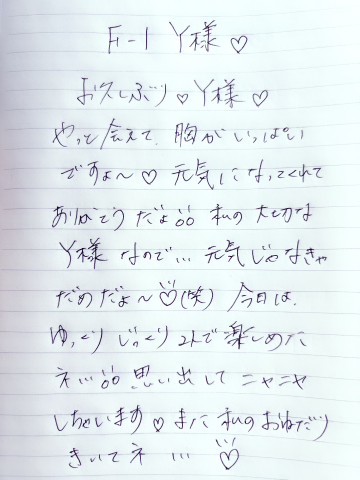 F-1 Y様♡
お久しぶり♡Y様♡
やっと会えて、胸がいっぱい
ですょ〜♡ 元気になってくれて
ありがとうだょ 私の大切な
Y様なので… 元気じゃなきゃ
だめだょ〜♡(笑) 今日は、
ゆっくりじっくり2人で楽しめた
ネ… 思い出してニャニャ
しちゃいます♡また私のおねだり
きいてネ…♡